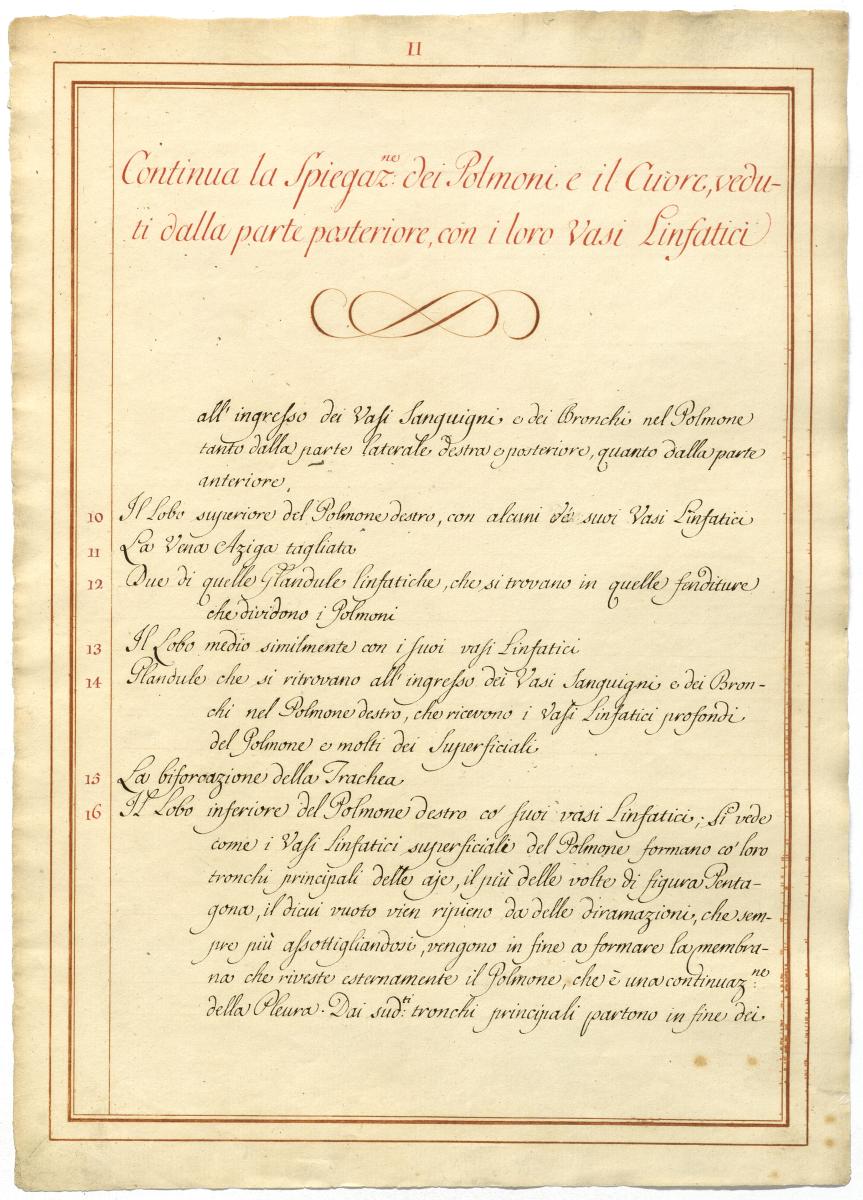 II
Continua la Spiegaz.ne dei Polmoni e il Cuore, vedu-
ti dalla parte posteriore, con i loro Vasi Linfatici
all' ingresso dei Vasi Sanguigni e dei Bronchi nel Polmone
tanto dalla parte laterale destra e posteriore, quanto dalla parte
anteriore
10 Il Lobo superiore del Polmone destro, con alcuni de' suoi Vasi Linfatici
11 La Vena Aziga tagliata
12 Due di quelle Glandule linfatiche, che si trovano in quelle fenditure
che dividono i Polmoni
13 Il Lobo medio similmente con i suoi vasi Linfatici
14 Glandule che si ritrovano all' ingresso dei Vasi Sanguigni e dei Bron-
chi nel Polmone destro, che ricevono i Vasi Linfatici profondi
del Polmone e molti dei Superficiali
15 La biforcazione della Trachea
16 Il Lobo inferiore del Polmone destro co' suoi vasi Linfatici; Si vede
come i Vasi Linfatici superficiali del Polmone formano co' loro
tronchi principali delle aje, il più delle volte di figura Penta-
gona, il dicui vuoto vien ripieno da delle diramazioni, che sem-
pre più assottigliandosi, vengono in fine a formare la membra-
na che riveste esternamente il Polmone, che è una continuaz.ne
della Pleura. Dai sud.ti tronchi principali partono in fine dei